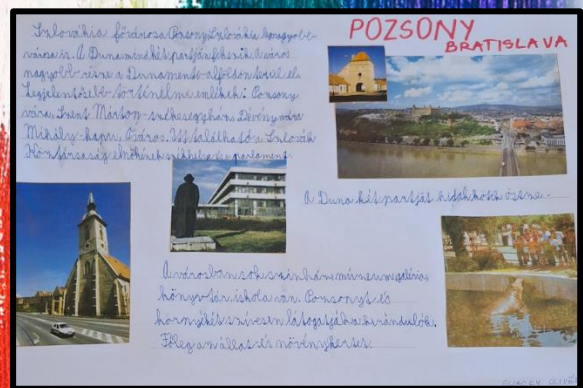 POZSONY
BRATISLAVA
Szlovákia fővárosa Pozsony Szlovákia legnagyobb
városa is. A Duna mindkét partján fekszik. A város
nagyobb része a Dunamenti-alföldön terül el.
Legjelentősebb történelmi emlékek: Pozsony
vára, Szent Márton-székesegyház, Dévény vára
Mihály-kapu, Óváros. Itt található a Szlovák
Köztársaság elnökének székhelye és a parlament.
A Duna két partját hidak kötik össze.
A városban sok színház, múzeum, galéria,
könyvtár, iskola van. Pozsonyt és
környékét szívesen látogatják a kirándulók.
Főleg az állat és növénykertet.